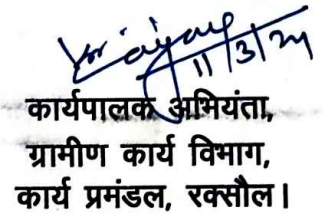 11/3/24
कार्यपालक अभियंता,
ग्रामीण कार्य विभाग,
कार्य प्रमंडल, रक्सौल।